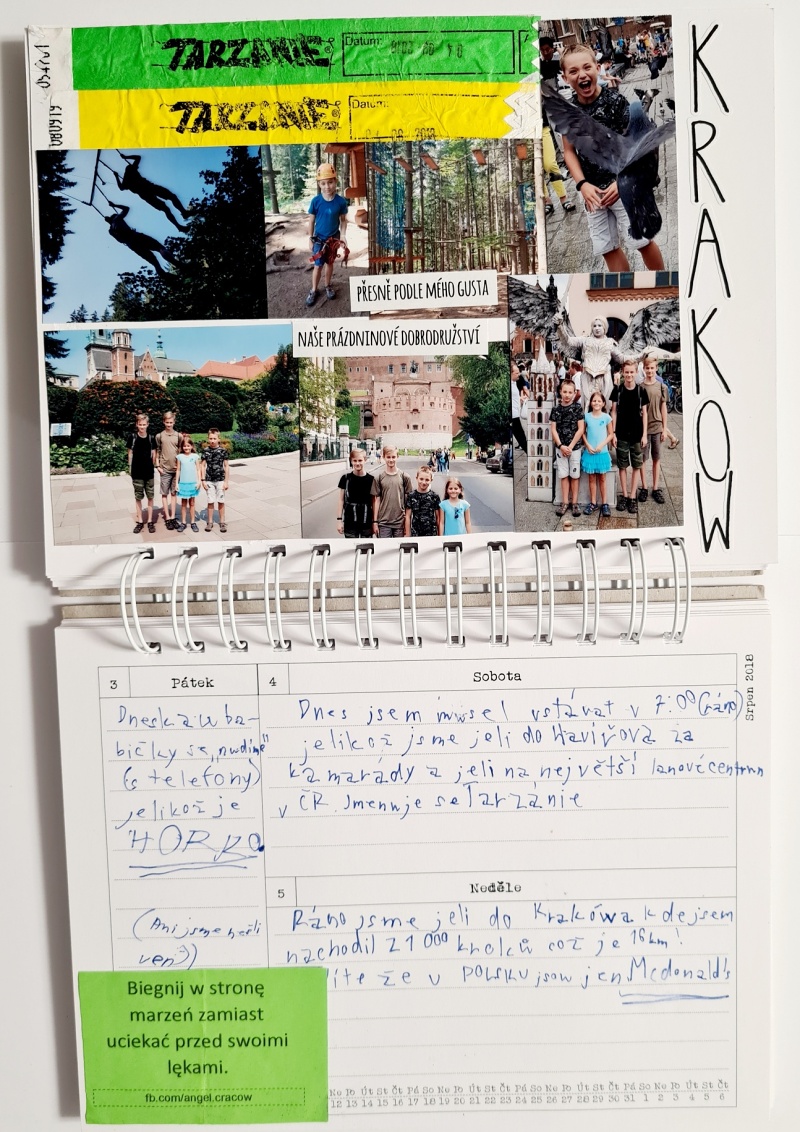 TARZANIE
Datum:
TARZANIE
Datum:
KRAKOW
PŘESNĚ PODLE MÉHO GUSTA
NAŠE PRÁZDNINOVÉ DOBRODRUŽSTVÍ
3 Pátek
Dneska u ba-
bičky se „nudíme"
(s telefony)
jelikož je
HORKO
(Ani jsme nešli
ven)
4 Sobota
Dnes jsem musel vstávat v 7:00 (ráno)
jelikož jsme jeli do Havířova za
kamarády a jeli na největší lanové centrum
v ČR. Jmenuje se Tarzánie
5 Neděle
Ráno jsme jeli do Krakówa kde jsem
nachodil 21 000 kroků což je 16km!
víte že v POLSKU jsou jen Mcdonald's
Srpen 2018
Biegnij w stronę
marzeń zamiast
uciekać przed swoimi
lękami.
fb.com/angel.cracow
Ne Po Út St Čt Pá So Ne Po Út St Čt Pá So Ne Po Út St Čt Pá So Ne Po Út St Čt
12 13 14 15 16 17 18 19 20 21 22 23 24 25 26 27 28 29 30 31 1 2 3 4 5 6